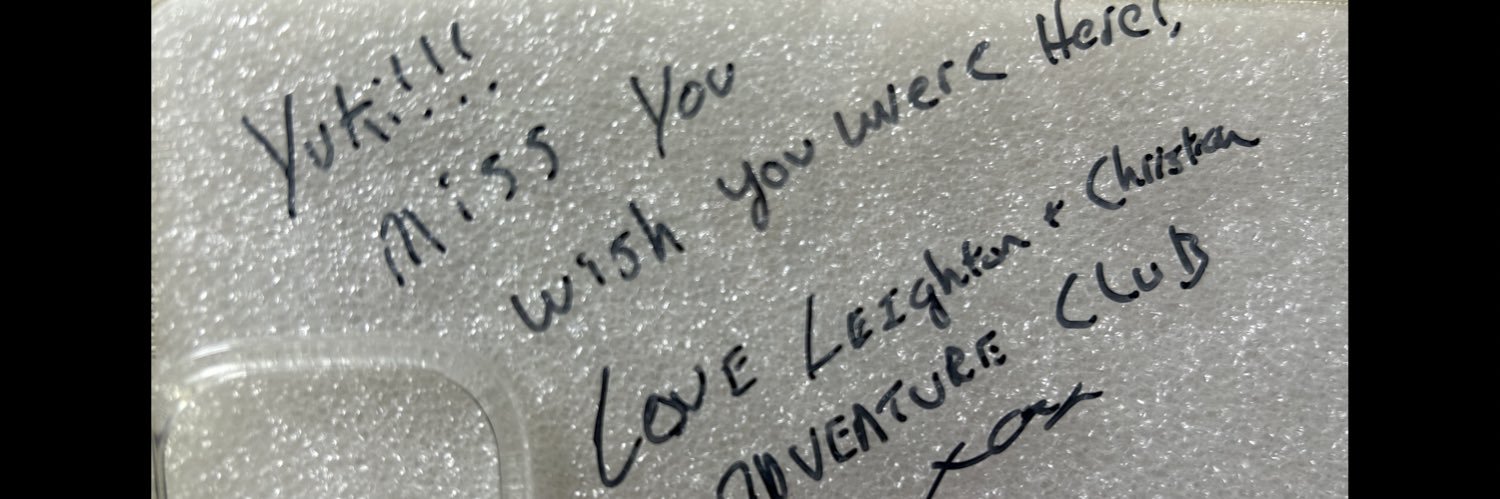 Yuki!!!
Miss You
Wish you were Here!
Love Leighton + Christian
ADVEATURE CLUB
xox